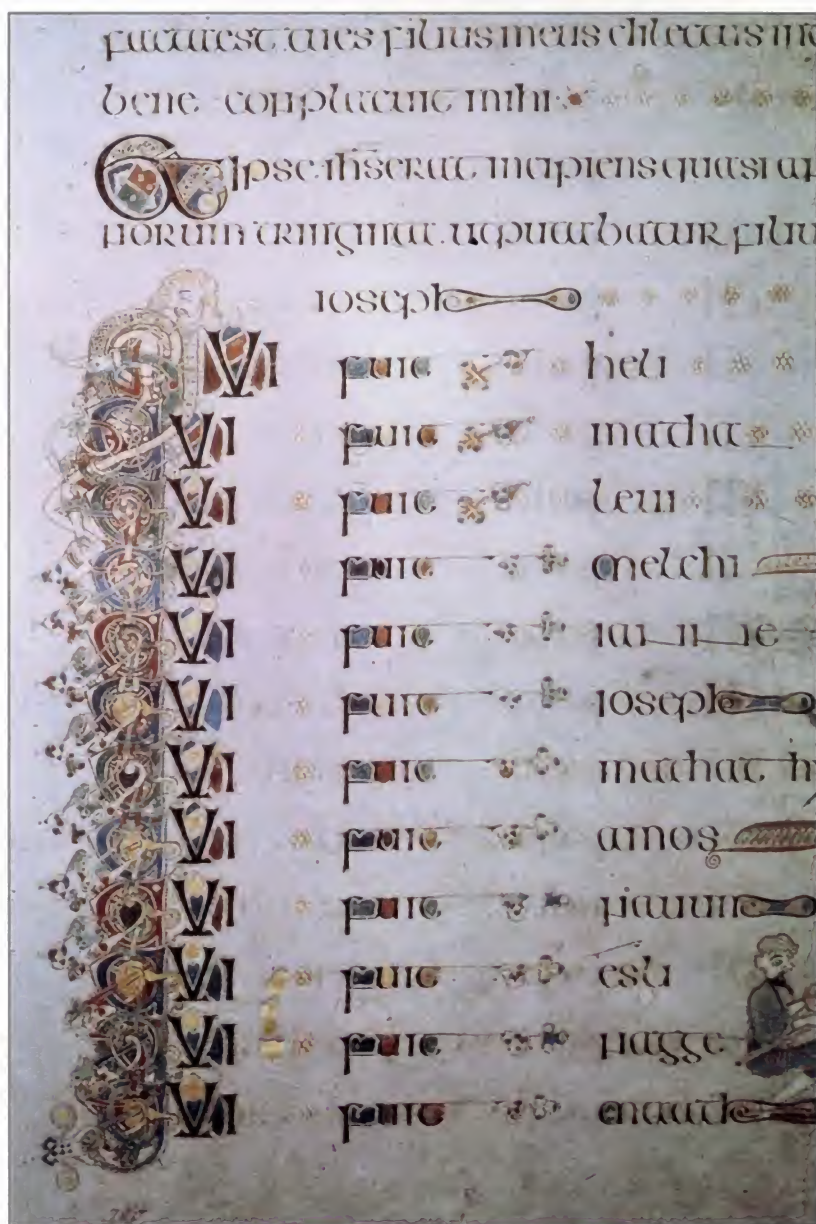 facta est tu es filius meus dilectus in
bene conplacuit mihi
Et ipse ihs erat incipiens quasi an
norum triginta ut putabatur filiu
ioseph
QVI fuit heli
QVI fuit matha
QVI fuit levi
QVI fuit melchi
QVI fuit
QVI fuit ioseph
QVI fuit mathat
QVI fuit amos
QVI fuit nauum
QVI fuit esli
QVI fuit nagge
QVI fuit maath